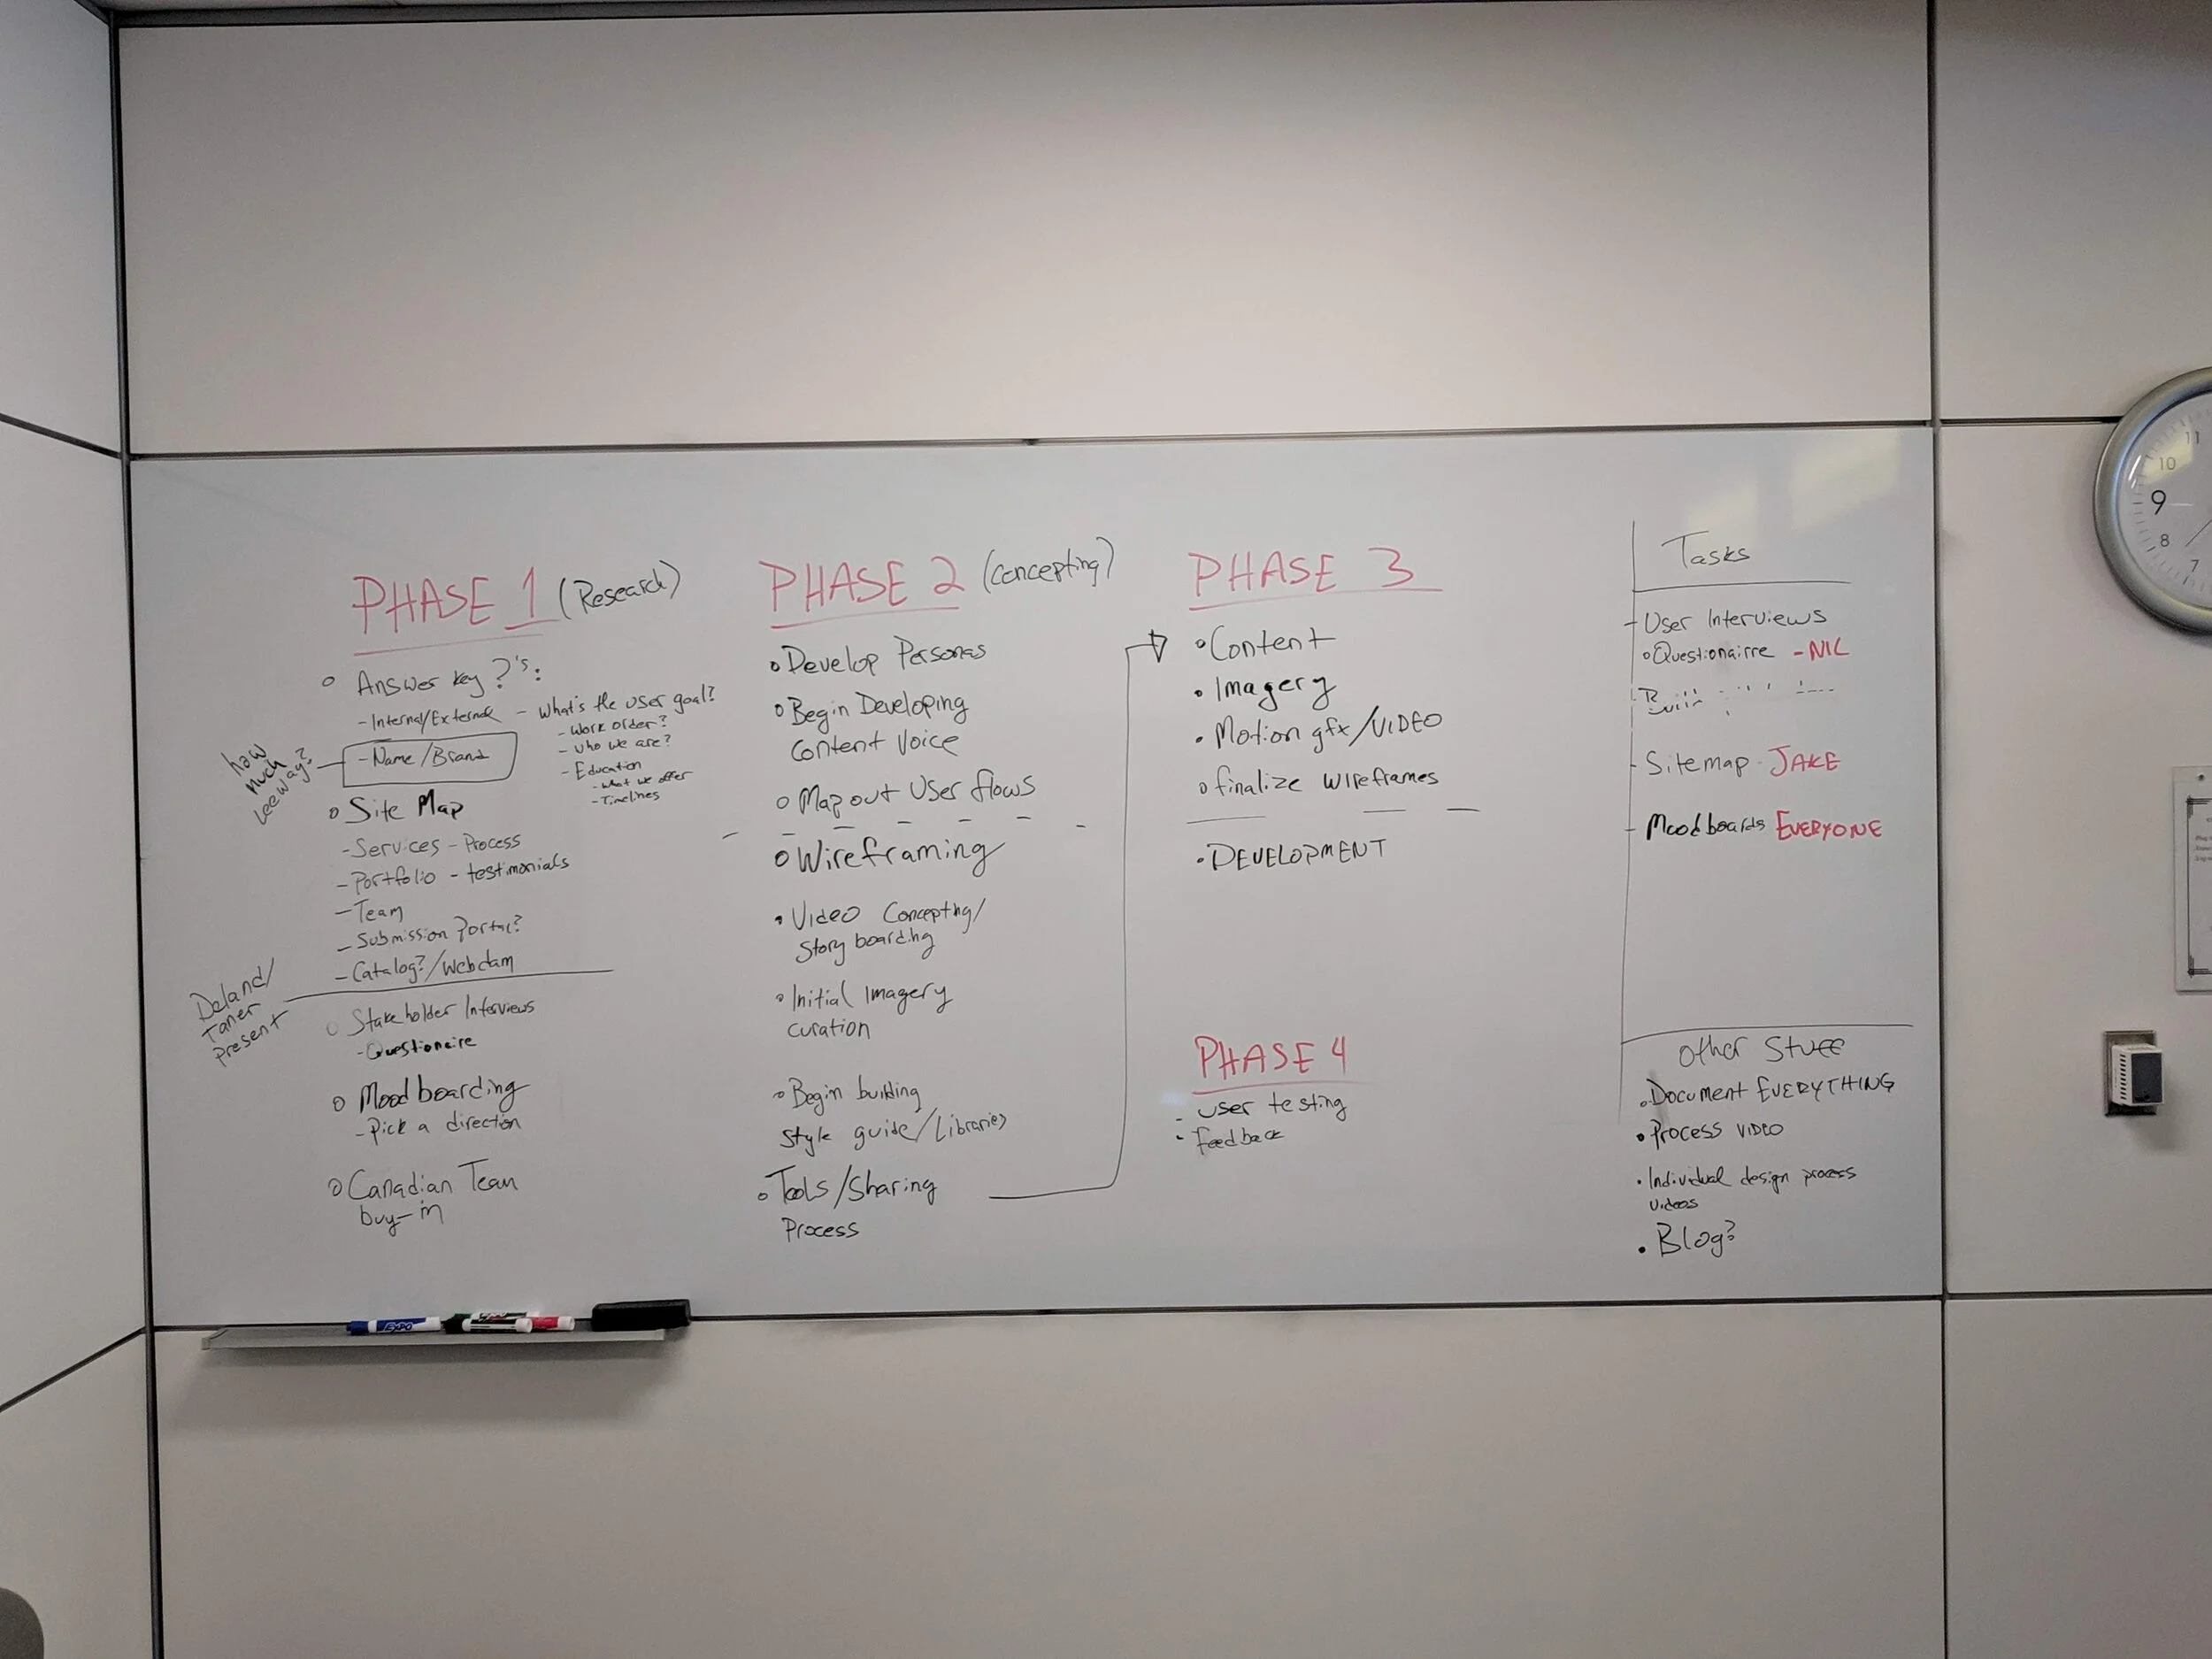 PHASE 1 (Research)
Answer key ?'s:
- Internal/External
- Name/Brand
how
much
leeway?
- What's the user goal?
- Work order?
- Who we are?
- Education
- What we offer
- Timelines
Site Map
- Services - Process
- Portfolio - testimonials
- Team
- Submission Portal?
- Catalog?/Webdam
Deland/
Taner
present
Stakeholder Interviews
- Questionaire
Moodboarding
- Pick a direction
Canadian Team
buy-in
PHASE 2 (Concepting)
Develop Personas
Begin Developing
Content Voice
Map out User flows
Wireframing
Video Concepting/
Storyboarding
Initial Imagery
curation
Begin building
Style guide/Libraries
Tools/Sharing
Process
PHASE 3
Content
Imagery
Motion gfx/VIDEO
finalize wireframes
DEVELOPMENT
PHASE 4
- User testing
- feedback
Tasks
- User Interviews
Questionairre - NIC
- Sitemap - JAKE
- Moodboards EVERYONE
Other Stuff
Document EVERYTHING
Process VIDEO
Individual design process
videos
Blog?
EXPO
11
10
9
8
7